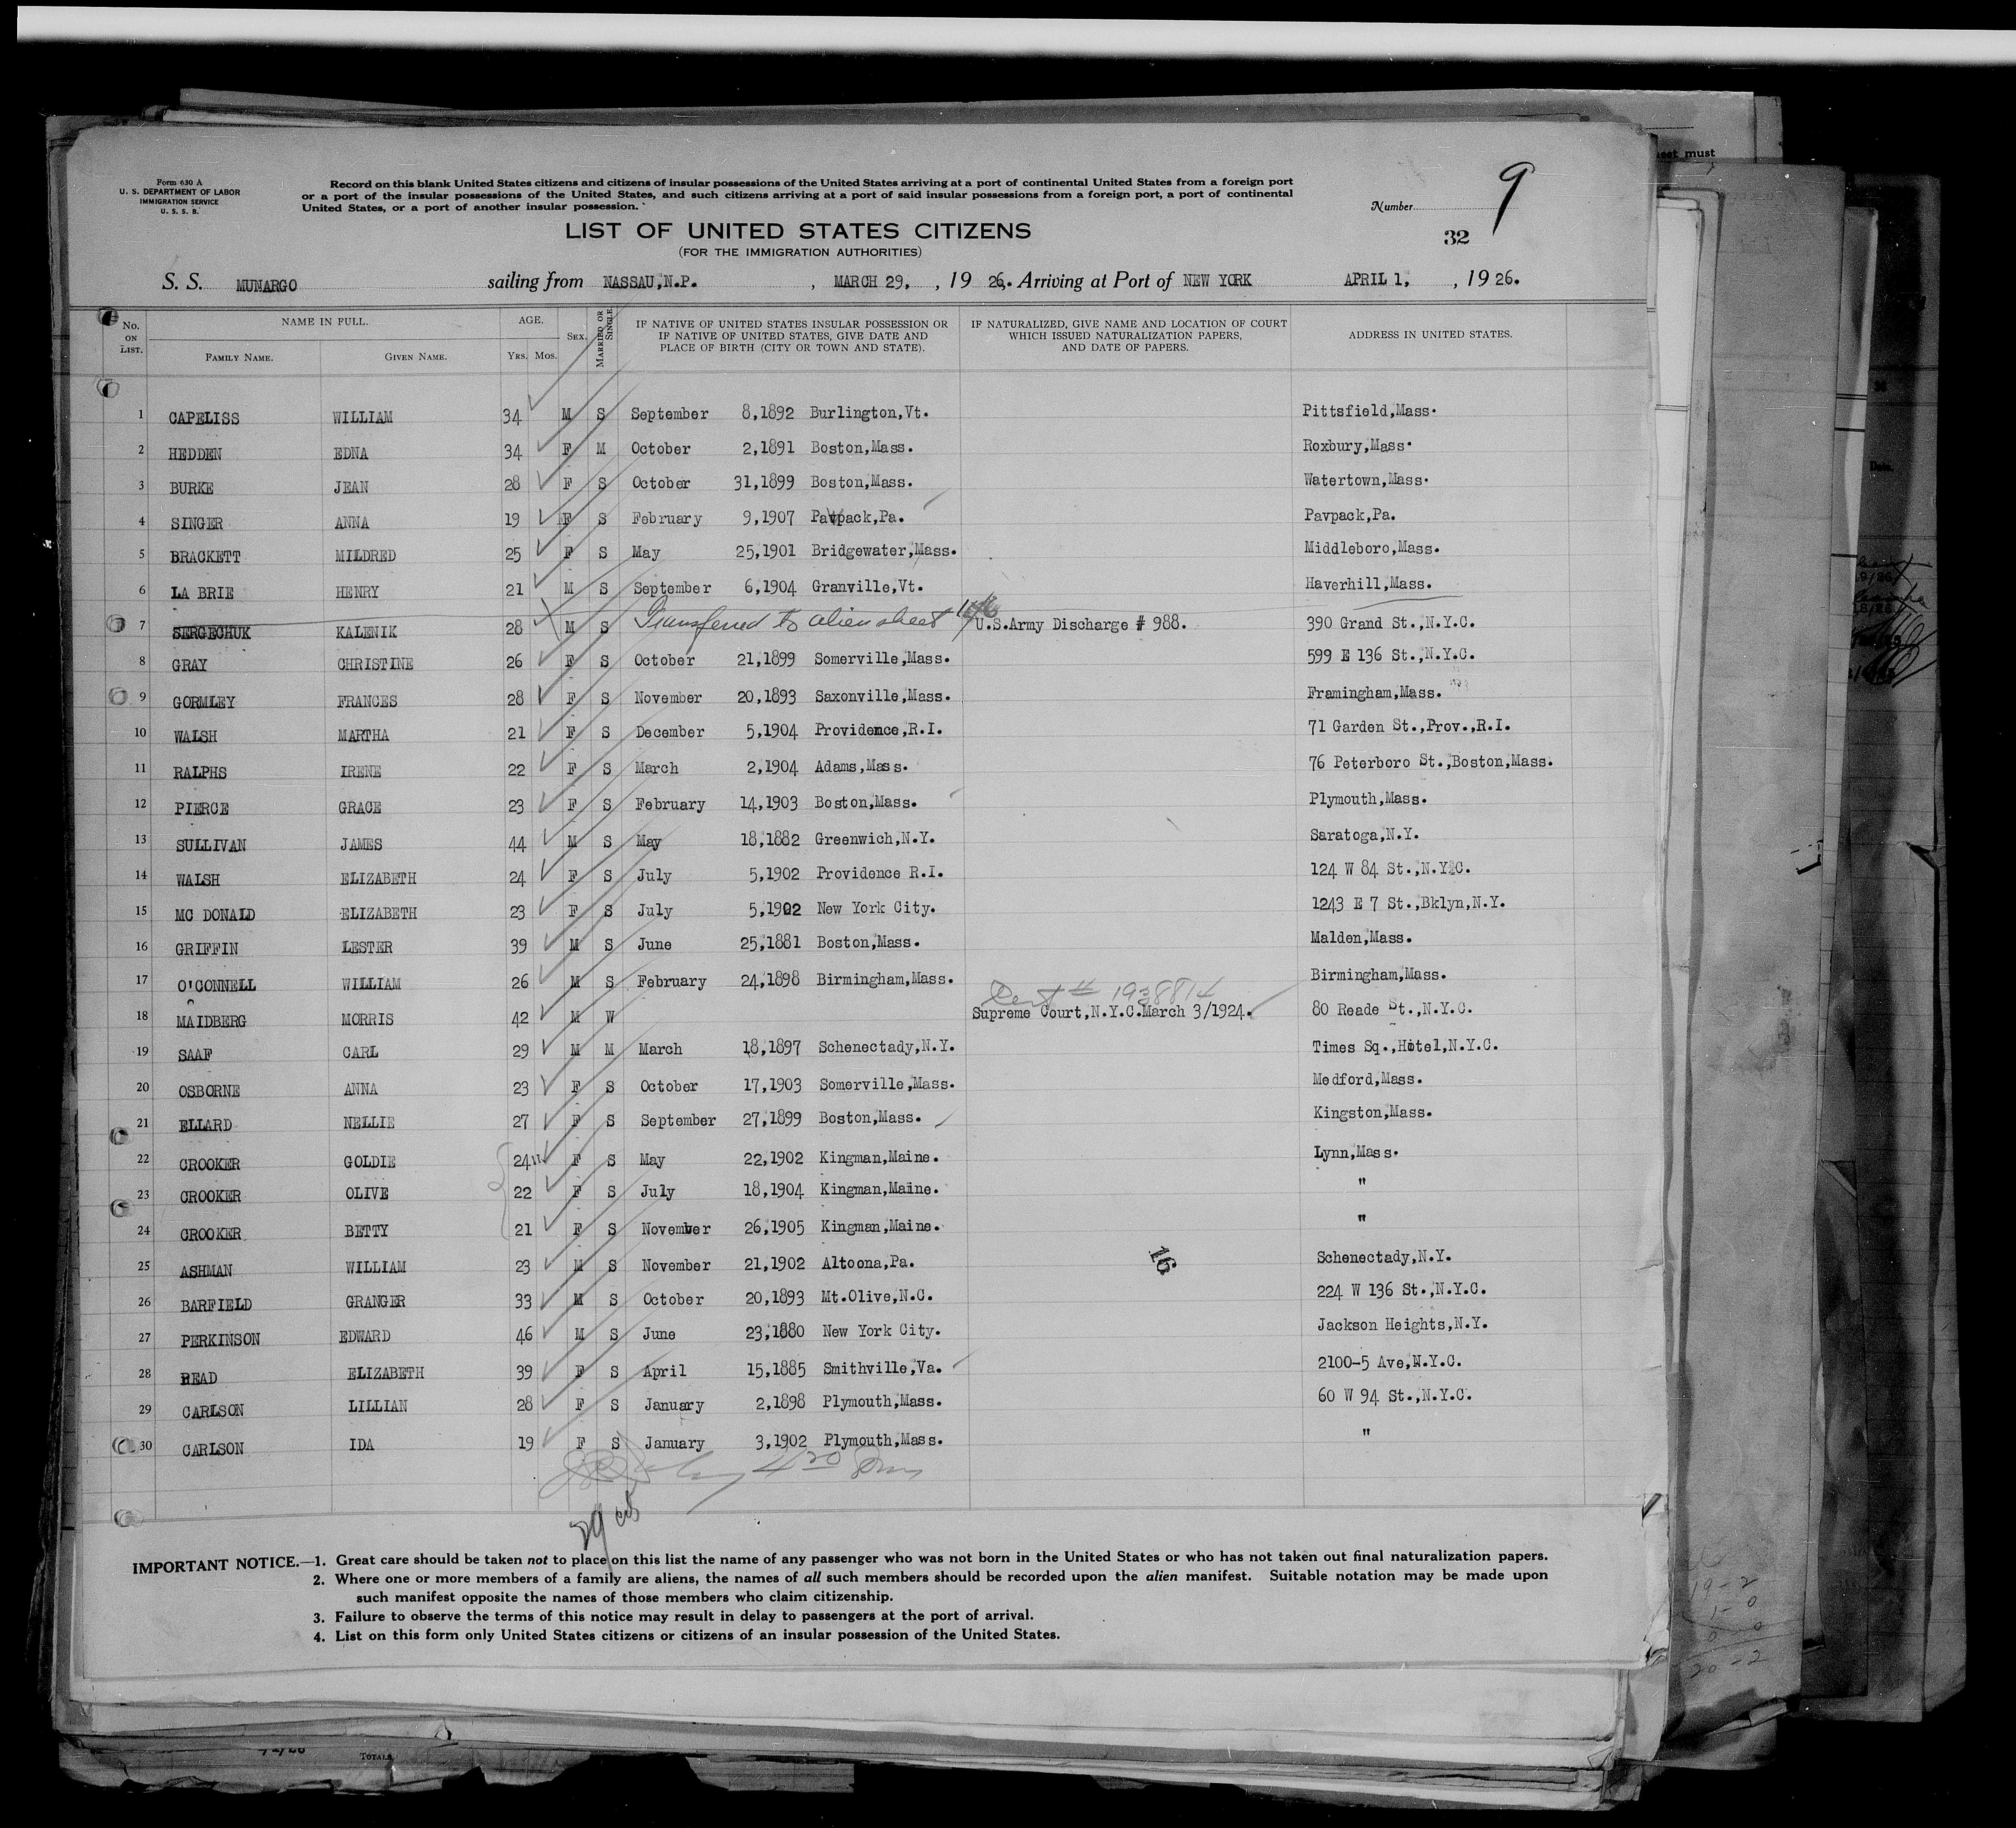 eet must
Form 630 A
U. S. DEPARTMENT OF LABOR
IMMIGRATION SERVICE
U. S. S. B.
Record on this blank United States citizens and citizens of insular possessions of the United States arriving at a port of continental United States from a foreign port
or a port of the insular possessions of the United States, and such citizens arriving at a port of said insular possessions from a foreign port, a port of continental
United States, or a port of another insular possession.
Number 9
LIST OF UNITED STATES CITIZENS
32
(FOR THE IMMIGRATION AUTHORITIES)
S. S. MUNARGO sailing from NASSAU,N.P. , MARCH 29, , 19 26. Arriving at Port of NEW YORK APRIL 1, , 19 26.
No. ON LIST. NAME IN FULL. FAMILY NAME. GIVEN NAME. AGE. YRS. MOS. SEX. MARRIED OR SINGLE. IF NATIVE OF UNITED STATES INSULAR POSSESSION OR IF NATIVE OF UNITED STATES, GIVE DATE AND PLACE OF BIRTH (CITY OR TOWN AND STATE). IF NATURALIZED, GIVE NAME AND LOCATION OF COURT WHICH ISSUED NATURALIZATION PAPERS, AND DATE OF PAPERS. ADDRESS IN UNITED STATES.
1 CAPELISS WILLIAM 34 M S September 8,1892 Burlington,Vt. Pittsfield,Mass.
2 HEDDEN EDNA 34 F M October 2,1891 Boston,Mass. Roxbury,Mass.
3 BURKE JEAN 28 F S October 31,1899 Boston,Mass. Watertown,Mass.
4 SINGER ANNA 19 F S February 9,1907 Pawpack,Pa. Pavpack,Pa.
5 BRACKETT MILDRED 25 F S May 25,1901 Bridgewater,Mass. Middleboro,Mass.
6 LA BRIE HENRY 21 M S September 6,1904 Granville,Vt. Haverhill,Mass.
7 SERGECHUK KALENIK 28 M S Transferred to alien sheet U.S.Army Discharge # 988. 390 Grand St.,N.Y.C.
8 GRAY CHRISTINE 26 F S October 21,1899 Somerville,Mass. 599 E 136 St.,N.Y.C.
9 GORMLEY FRANCES 28 F S November 20,1893 Saxonville,Mass. Framingham,Mass.
10 WALSH MARTHA 21 F S December 5,1904 Providence,R.I. 71 Garden St.,Prov.,R.I.
11 RALPHS IRENE 22 F S March 2,1904 Adams,Mass. 76 Peterboro St.,Boston,Mass.
12 PIERCE GRACE 23 F S February 14,1903 Boston,Mass. Plymouth,Mass.
13 SULLIVAN JAMES 44 M S May 18,1882 Greenwich,N.Y. Saratoga,N.Y.
14 WALSH ELIZABETH 24 F S July 5,1902 Providence R.I. 124 W 84 St.,N.Y.C.
15 MC DONALD ELIZABETH 23 F S July 5,1902 New York City. 1243 E 7 St.,Bklyn,N.Y.
16 GRIFFIN LESTER 39 M S June 25,1881 Boston,Mass. Malden,Mass.
17 O'CONNELL WILLIAM 26 M S February 24,1898 Birmingham,Mass. Birmingham,Mass.
Cert # 1938814
18 MAIDBERG MORRIS 42 M W Supreme Court,N.Y.C.March 3/1924. 80 Reade St.,N.Y.C.
19 SAAF CARL 29 M M March 18,1897 Schenectady,N.Y. Times Sq.,Hotel,N.Y.C.
20 OSBORNE ANNA 23 F S October 17,1903 Somerville,Mass. Medford,Mass.
21 ELLARD NELLIE 27 F S September 27,1899 Boston,Mass. Kingston,Mass.
22 CROOKER GOLDIE 24 F S May 22,1902 Kingman,Maine. Lynn,Mass.
23 CROOKER OLIVE 22 F S July 18,1904 Kingman,Maine. "
24 CROOKER BETTY 21 F S November 26,1905 Kingman,Maine. "
25 ASHMAN WILLIAM 23 M S November 21,1902 Altoona,Pa. 16 Schenectady,N.Y.
26 BARFIELD GRANGER 33 M S October 20,1893 Mt.Olive,N.C. 224 W 136 St.,N.Y.C.
27 PERKINSON EDWARD 46 M S June 23,1880 New York City. Jackson Heights,N.Y.
28 READ ELIZABETH 39 F S April 15,1885 Smithville,Va. 2100-5 Ave,N.Y.C.
29 CARLSON LILLIAN 28 F S January 2,1898 Plymouth,Mass. 60 W 94 St.,N.Y.C.
30 CARLSON IDA 19 F S January 3,1902 Plymouth,Mass. "
IMPORTANT NOTICE.—1. Great care should be taken not to place on this list the name of any passenger who was not born in the United States or who has not taken out final naturalization papers.
2. Where one or more members of a family are aliens, the names of all such members should be recorded upon the alien manifest. Suitable notation may be made upon
such manifest opposite the names of those members who claim citizenship.
3. Failure to observe the terms of this notice may result in delay to passengers at the port of arrival.
4. List on this form only United States citizens or citizens of an insular possession of the United States.
19-2
1-0
0 0
20-2
TOTALS
Date.